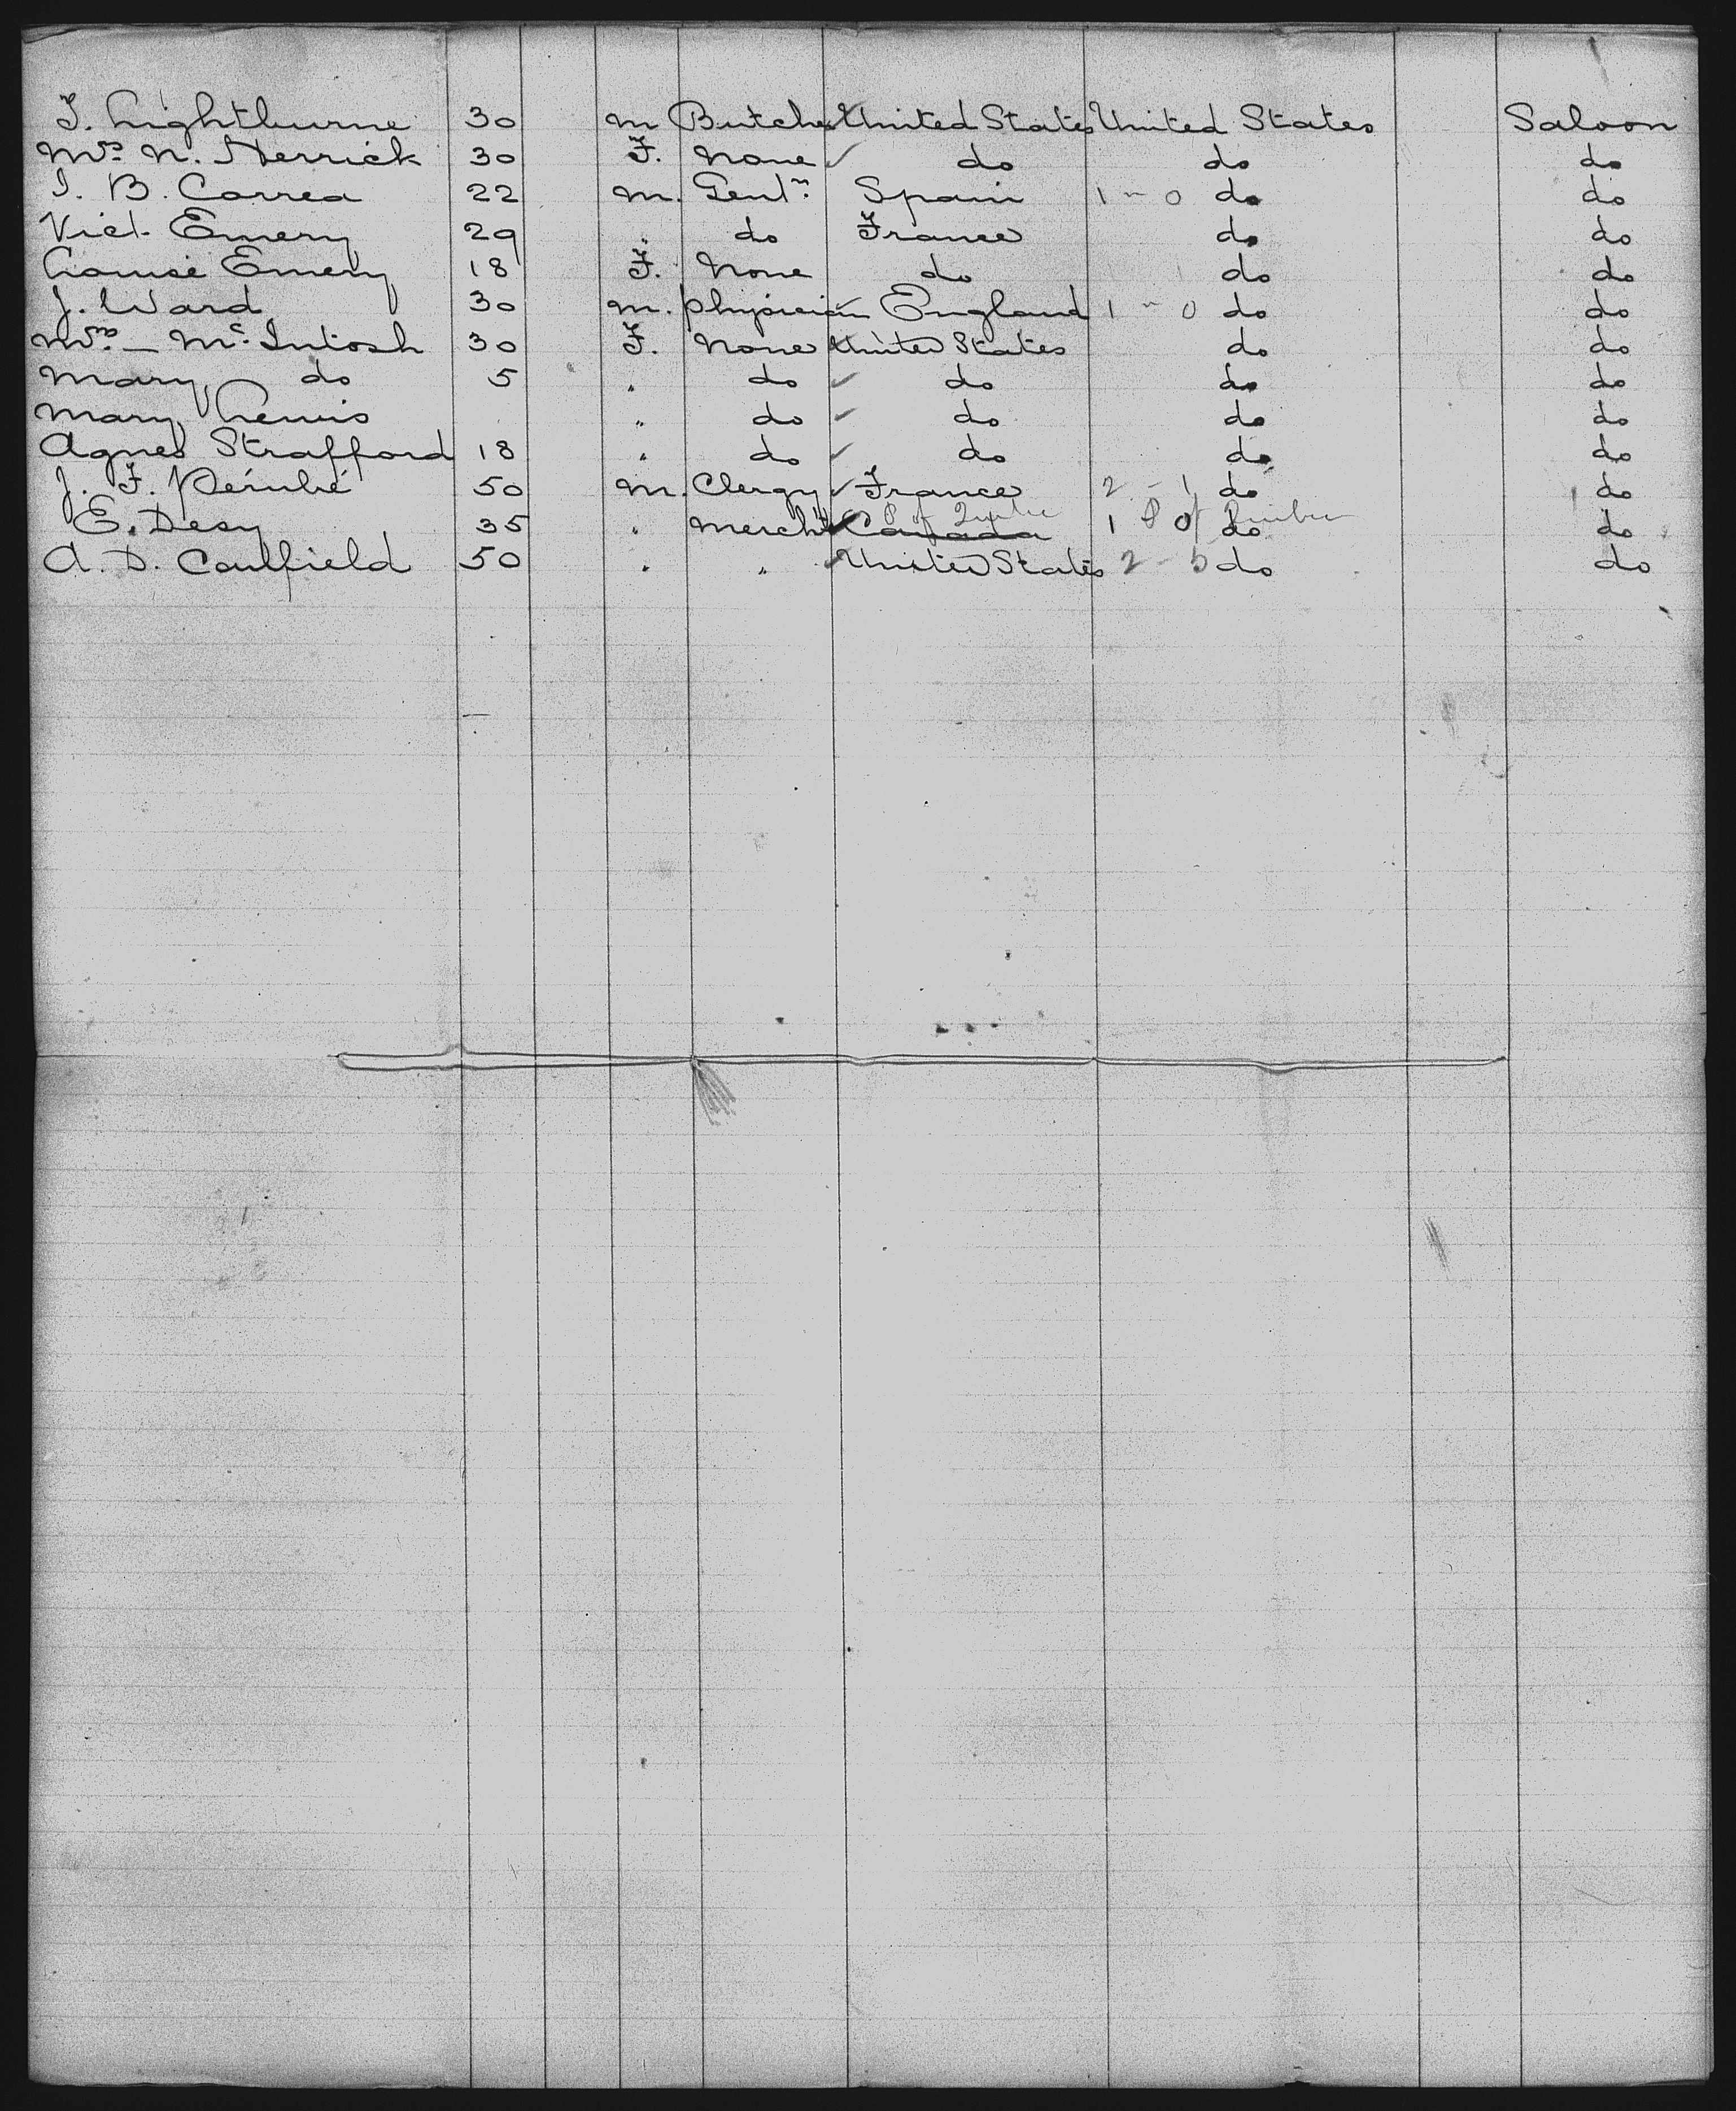 T. Lightburne 30 m Butcher United States United States Saloon
Mrs. N. Herrick 30 F. None do do do
I. B. Correa 22 m. Gentn. Spain 1 - 0 do do
Vict. Emery 29 " do France do do
Louise Emery 18 F. None do do do
J. Ward 30 m. physician England 1 - 0 do do
Mrs. — Mc.Intosh 30 F. None United States do do
Mary do 5 " do do do do
Mary Lewis " do do do do
Agnes Strafford 18 " do do do do
J. F. 50 m. Clergy France 2 - 1 do do
P of Quebec P of Quebec
E. Desy 35 " Mercht Canada 1 0 do do
A. D. Caulfield 50 " " United States 2 - do do